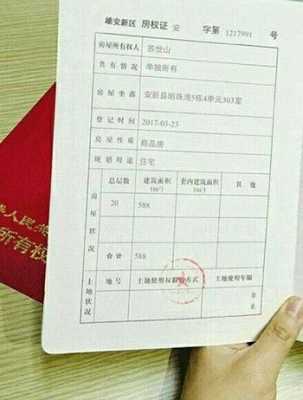 雄安新区 房权证 安 字第 1217991 号
房屋所有权人 苏世山
共有情况 单独所有
房屋坐落 安新县明珠湾5栋4单元303室
登记时间 2017-03-25
房屋性质 商品房
规划用途 住宅
房屋状况
总层数 建筑面积 (m²) 套内建筑面积 (m²) 其他
20 588
合计 588
土地状况
地号 土地使用权取得方式 土地使用年限
年
人民共
所有权